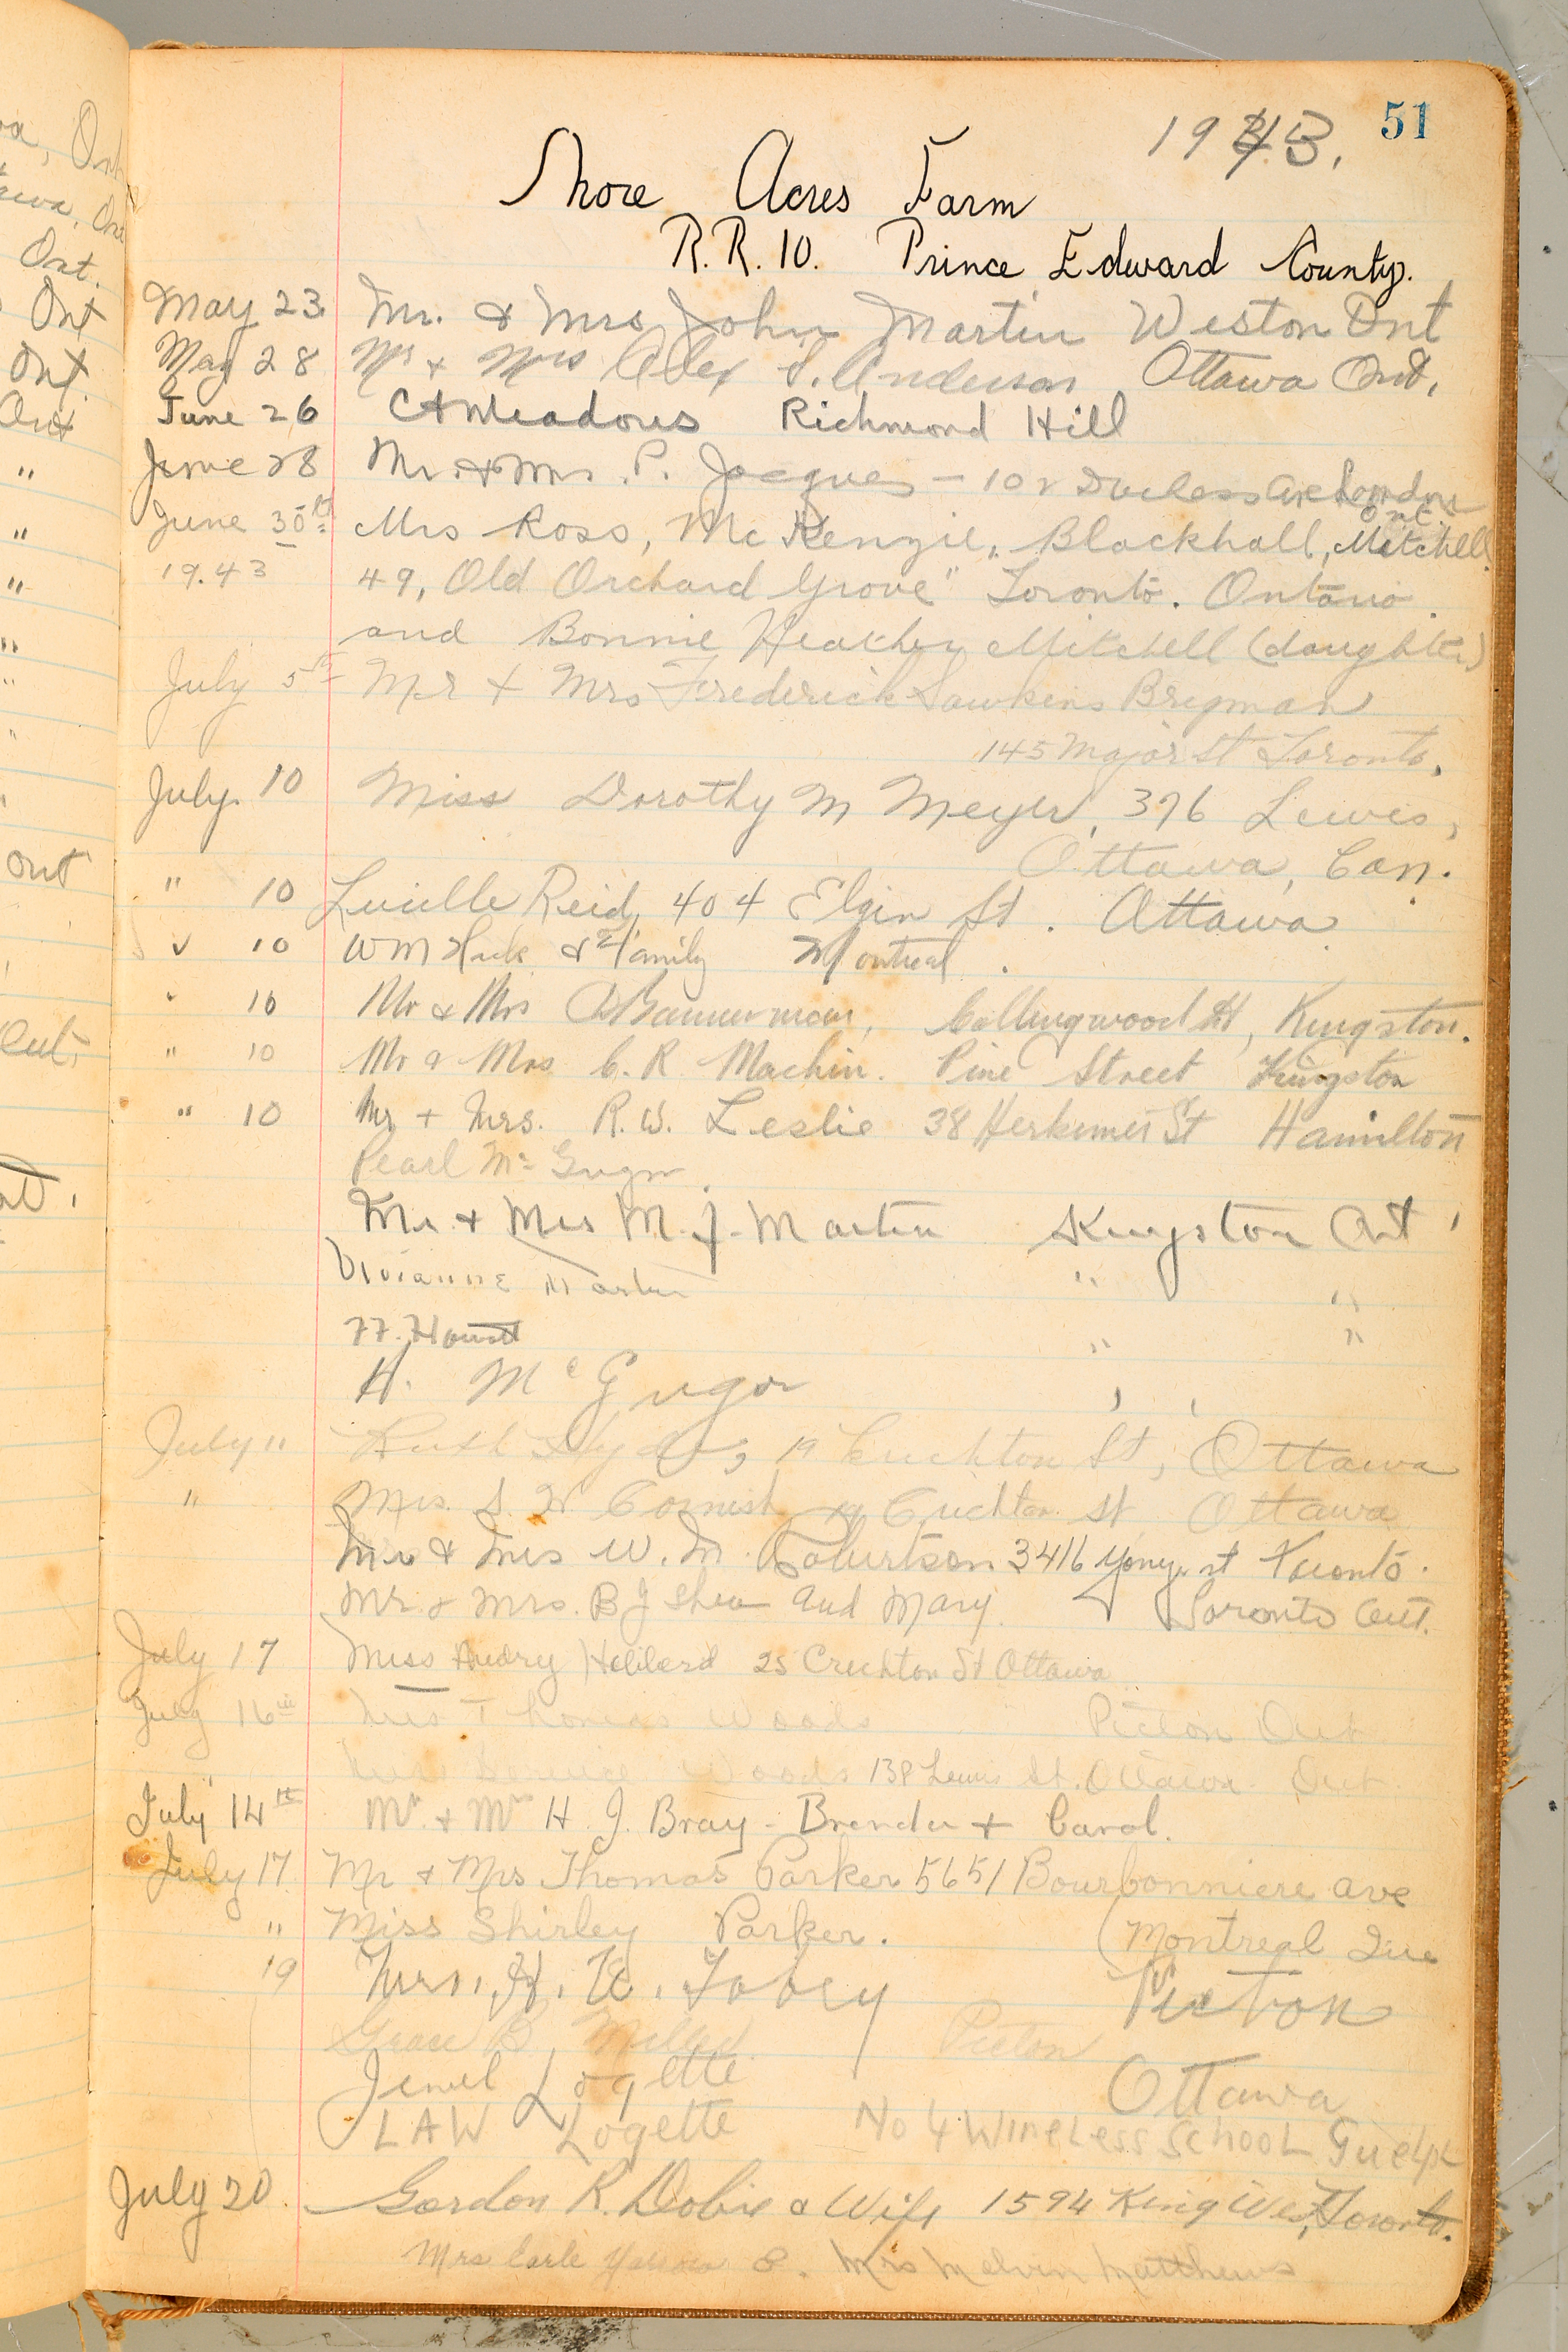 51
1943.
Shore Acres Farm
R.R. 10. Prince Edward County.
May 23 Mr. & Mrs John Martin Weston Ont
May 28 Mr + Mrs Alex S. Anderson Ottawa Ont.
June 26 CA Meadows Richmond Hill
June 28 Mr. & Mrs. P. Jacques - 102 Duchess Ave London
Ont.
June 30th Mrs Ross, Mc Kenzie, Blackhall, Mitchell
19.43 49, Old Orchard Grove" Toronto. Ontario.
and Bonnie Heather Mitchell (daughter)
July 5th Mr + Mrs Frederick Hawkins Bregman
145 Major St Toronto.
July. 10 Miss Dorothy M Meyer, 376 Lewis,
Ottawa, Can.
" 10 Lucille Reid, 404 Elgin St. Ottawa
" 10 WM & Family Montreal.
" 10 Mr & Mrs Bannerman, Collingwood St, Kingston.
" 10 Mr & Mrs C. R. Machin. Pine Street Kingston
" 10 Mr + Mrs. R.W. Leslie 38 Herkimer St Hamilton
Pearl Mc Gregor.
Mr + Mrs M. J. Martin Kingston Ont
Vivianne Martin " "
" "
H. McGregor
July 11 Ruth 19 Crichton St, Ottawa
" Mrs. S. W Cornish 19 Crichton St Ottawa
Mr & Mrs W. M. Robertson 3416 Yonge st Toronto.
Mr. & Mrs. B J Shea and Mary. Toronto Ont.
July 17 Miss Audry Hebberd 25 Crechton St Ottawa
July 16th Mrs Thomas Woods Picton Ont
Woods 138 Lewis St. Ottawa. Ont.
July 14th Mr. + Mrs H. J. Bray - Brenda + Carol.
July 17 Mr + Mrs Thomas Parker 5651 Bourbonniere ave
" Miss Shirley Parker. (Montreal Que
19 Mrs. H. W. Tobey Picton
Grace B. Picton
Jewel Logette Ottawa
LAW Logette No 4 Wireless School Guelph
July 20. Gordon R. Dobie & Wife 1594 King West, Toronto.
Mrs Earle & Mrs Melvin Matthews